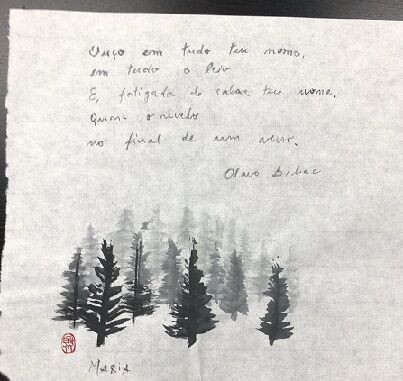 Ouço em tudo teu nome,
em tudo o leio
E, fatigada de calar teu nome,
Quase o revelo
no final de um verso.
Olavo Bilac
Maria